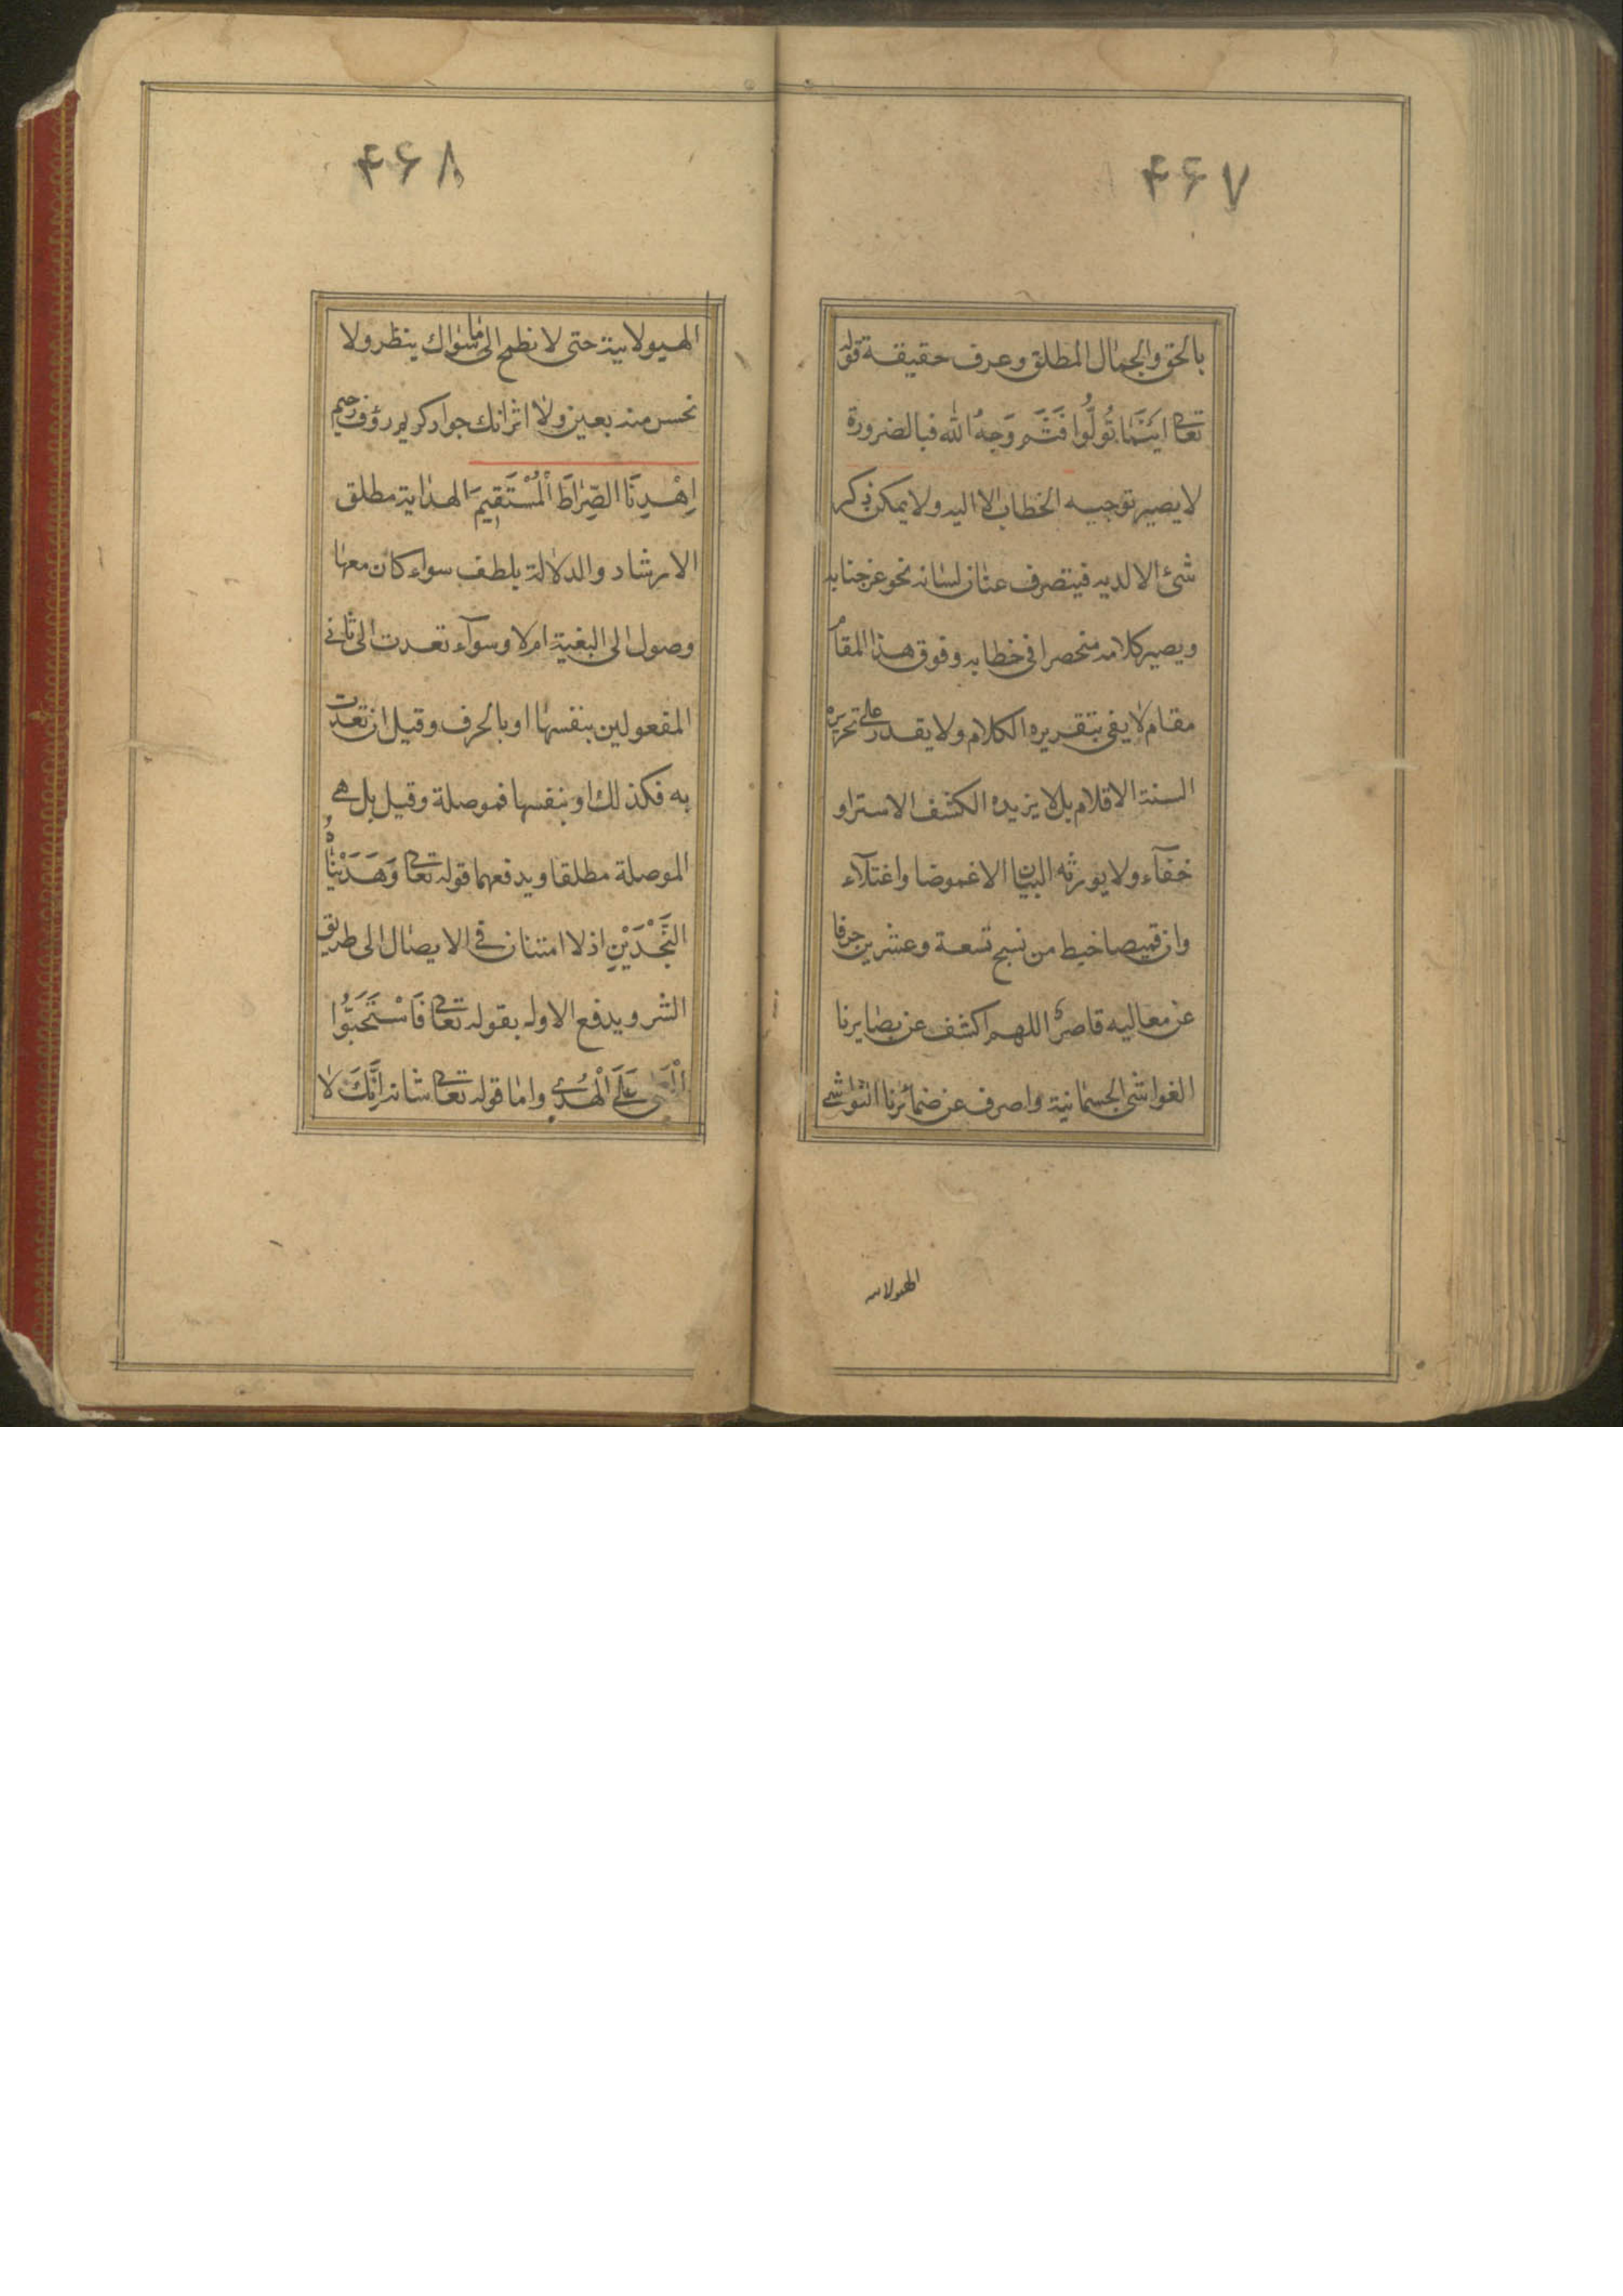 ۴۶۷
بالحق والجمال المطلق وعرف حقيقة قوله
تعالى اَيْنَمَا تُوَلُّوا فَثَمَّ وَجهُ الله فبالضرورة
لا يصير توجيه الخطاب الا اليه ولا يمكن ذكر
شئ الا لديه فيتصرف عنان لسانه نحو عز جنابه
ويصير كلامه منحصرا فى خطابه وفوق هذا المقام
مقام لا يفى بتقريره الكلام ولا يقدر على تحريره
السنة الاقلام بل لا يزيده الكشف الا سترا و
خفآء ولا يورثه البيان الا غموضا واعتلآء
وان قميصا خيط من نسج تسعة وعشرين حرفا
عن معاليه قاصر اللهم اكشف عن بصايرنا
الغواشى الجسمانية واصرف عن ضمائرنا النواشى
الهيولانيه
۴۶۸
الهيولانية حتى لا نطمح الى ما سواك بنظر ولا
نحس منه بعين ولا اثر انك جواد كريم رؤف رحيم
اِهْدِنَا الصِّرَاطَ الْمُسْتَقِيمَ الهداية مطلق
الارشاد والدلالة بلطف سواء كان معها
وصول الى البغية ام لا وسوآء تعدت الى ثانى
المفعولين بنفسها او بالحرف وقيل ان تعدت
به فكذلك او بنفسها فموصلة وقيل بل هى
الموصلة مطلقا ويدفعهما قوله تعالى وَهَدَيْنَاهُ
النَّجْدَيْنِ اذ لا امتنان فى الايصال الى طريق
الشر ويدفع الاول بقوله تعالى فَاسْتَحَبُّوا
الْعَمى عَلَى الْهُدى واما قوله تعالى شانه اِنَّكَ لا